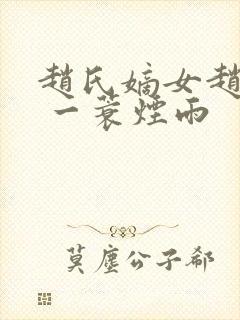 趙氏嫡女趙
一蓑煙雨
莫塵公子郗